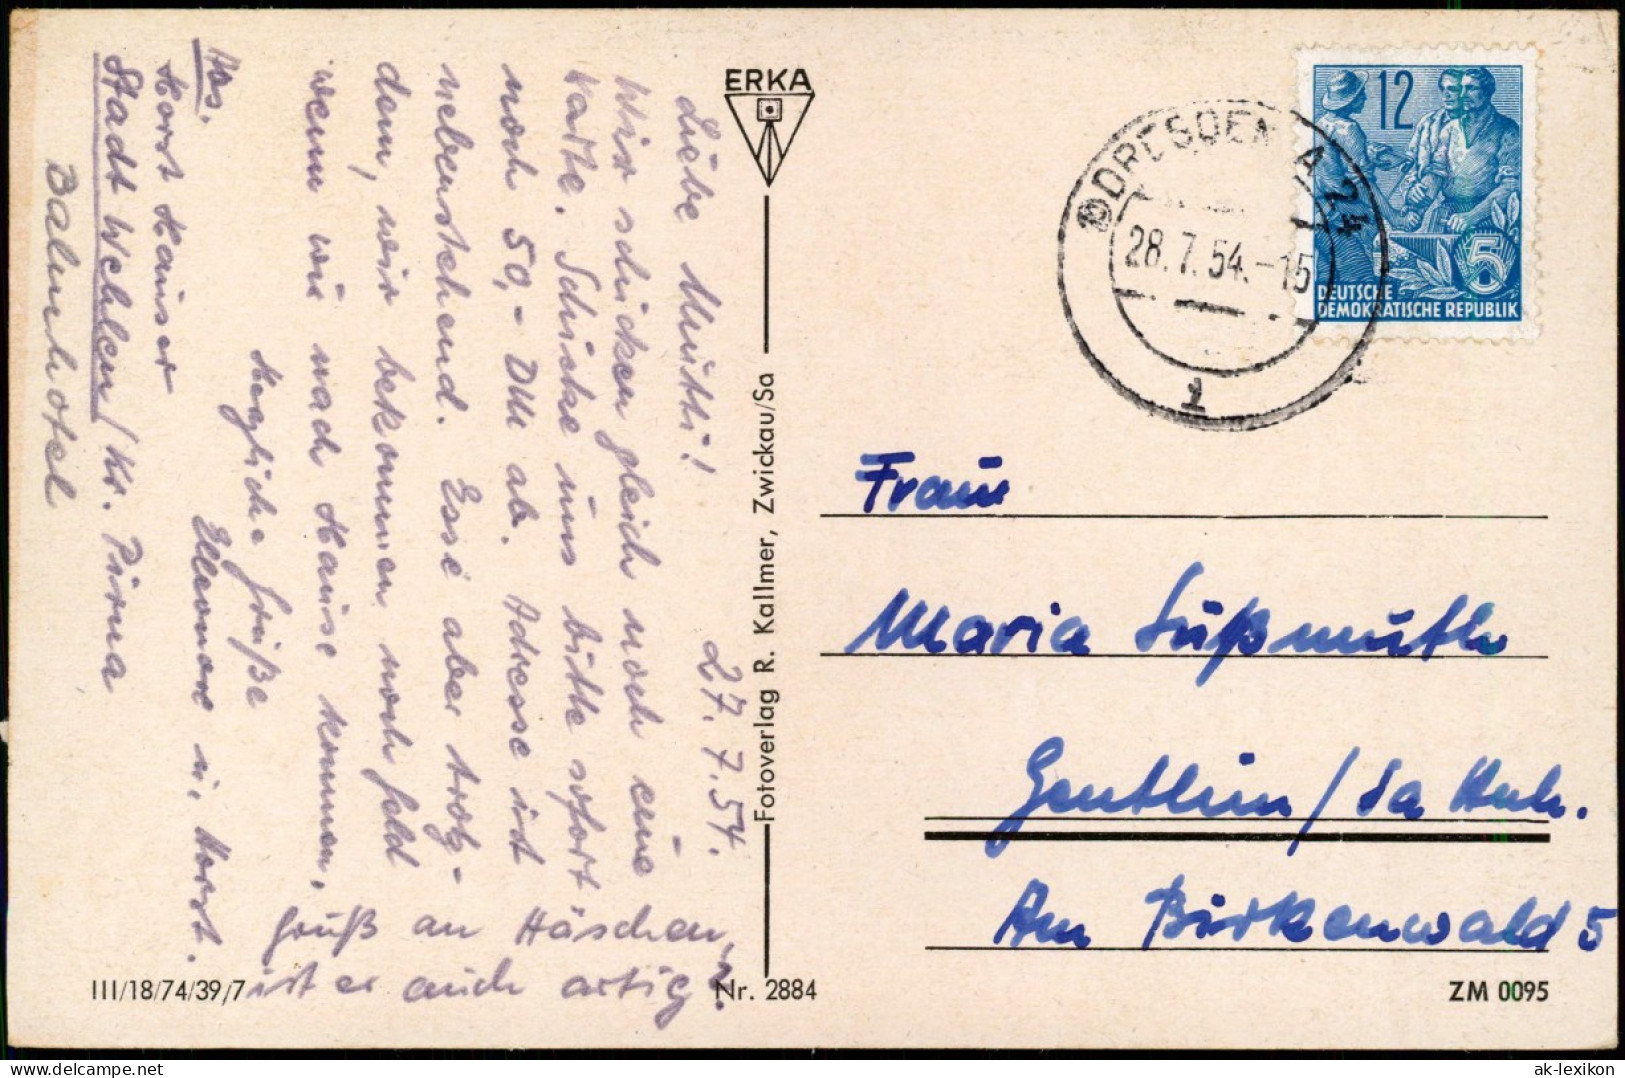 27.7.54.
Liebe Mutti!
Wir schicken gleich noch eine
Karte. Schicke uns bitte sofort,
noch 50,- DM ab. Adresse ist
nebenstehend. Esse aber trotz-
dem, wir bekommen noch Geld
wenn wir nach Hause kommen.
Herzliche Grüße
Ellenore u. Horst.
Abs.
Horst Hauser
Stadt Wehlen/Kr. Pirna
Bahnhotel
Gruß an Häschen,
ist er auch artig?
ERKA
Fotoverlag R. Kallmer, Zwickau/Sa
III/18/74/39/7
Nr. 2884
ZM 0095
DRESDEN A 24
28.7.54.-15
1
12
5
DEUTSCHE
DEMOKRATISCHE REPUBLIK
Frau
Maria Süßmuth
Genthin/Sa Anh.
Am Birkenwald 5
ak-lexikon